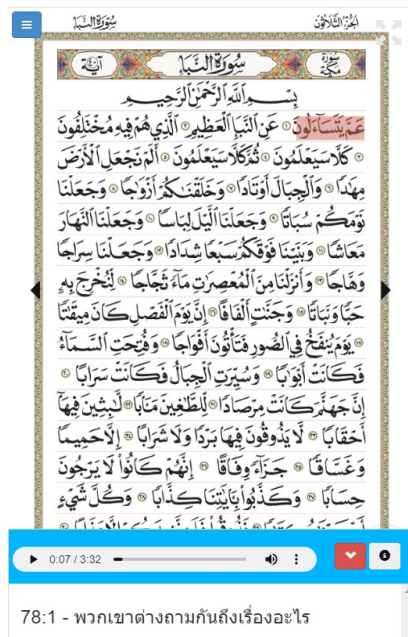 الجزء الثلاثون سورة النبإ
سورة مكية سورة النبإ آية ٤٠
بِسْمِ اللَّهِ الرَّحْمَٰنِ الرَّحِيمِ
عَمَّ يَتَسَاءَلُونَ ۝١ عَنِ النَّبَإِ الْعَظِيمِ ۝٢ الَّذِي هُمْ فِيهِ مُخْتَلِفُونَ
۝٣ كَلَّا سَيَعْلَمُونَ ۝٤ ثُمَّ كَلَّا سَيَعْلَمُونَ ۝٥ أَلَمْ نَجْعَلِ الْأَرْضَ
مِهَادًا ۝٦ وَالْجِبَالَ أَوْتَادًا ۝٧ وَخَلَقْنَاكُمْ أَزْوَاجًا ۝٨ وَجَعَلْنَا
نَوْمَكُمْ سُبَاتًا ۝٩ وَجَعَلْنَا اللَّيْلَ لِبَاسًا ۝١٠ وَجَعَلْنَا النَّهَارَ
مَعَاشًا ۝١١ وَبَنَيْنَا فَوْقَكُمْ سَبْعًا شِدَادًا ۝١٢ وَجَعَلْنَا سِرَاجًا
وَهَّاجًا ۝١٣ وَأَنْزَلْنَا مِنَ الْمُعْصِرَاتِ مَاءً ثَجَّاجًا ۝١٤ لِنُخْرِجَ بِهِ
حَبًّا وَنَبَاتًا ۝١٥ وَجَنَّاتٍ أَلْفَافًا ۝١٦ إِنَّ يَوْمَ الْفَصْلِ كَانَ مِيقَاتًا
۝١٧ يَوْمَ يُنْفَخُ فِي الصُّورِ فَتَأْتُونَ أَفْوَاجًا ۝١٨ وَفُتِحَتِ السَّمَاءُ
فَكَانَتْ أَبْوَابًا ۝١٩ وَسُيِّرَتِ الْجِبَالُ فَكَانَتْ سَرَابًا ۝٢٠
إِنَّ جَهَنَّمَ كَانَتْ مِرْصَادًا ۝٢١ لِلطَّاغِينَ مَآبًا ۝٢٢ لَابِثِينَ فِيهَا
أَحْقَابًا ۝٢٣ لَا يَذُوقُونَ فِيهَا بَرْدًا وَلَا شَرَابًا ۝٢٤ إِلَّا حَمِيمًا
وَغَسَّاقًا ۝٢٥ جَزَاءً وِفَاقًا ۝٢٦ إِنَّهُمْ كَانُوا لَا يَرْجُونَ
حِسَابًا ۝٢٧ وَكَذَّبُوا بِآيَاتِنَا كِذَّابًا ۝٢٨ وَكُلَّ شَيْءٍ
0:07 / 3:32
78:1 - พวกเขาต่างถามกันถึงเรื่องอะไร